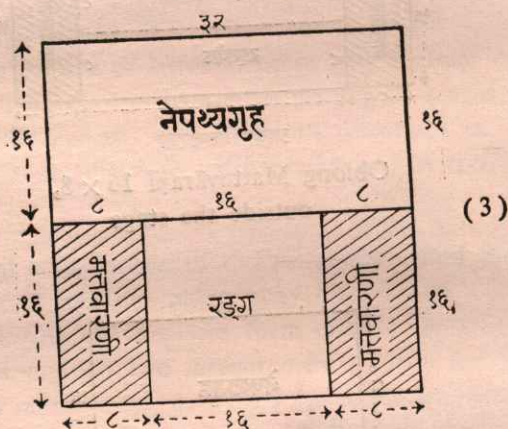 ३२
१६ नेपथ्यगृह १६
८ १६ ८
(3)
१६ मत्तवारणी रङ्ग मत्तवारणी १६
८ १६ ८